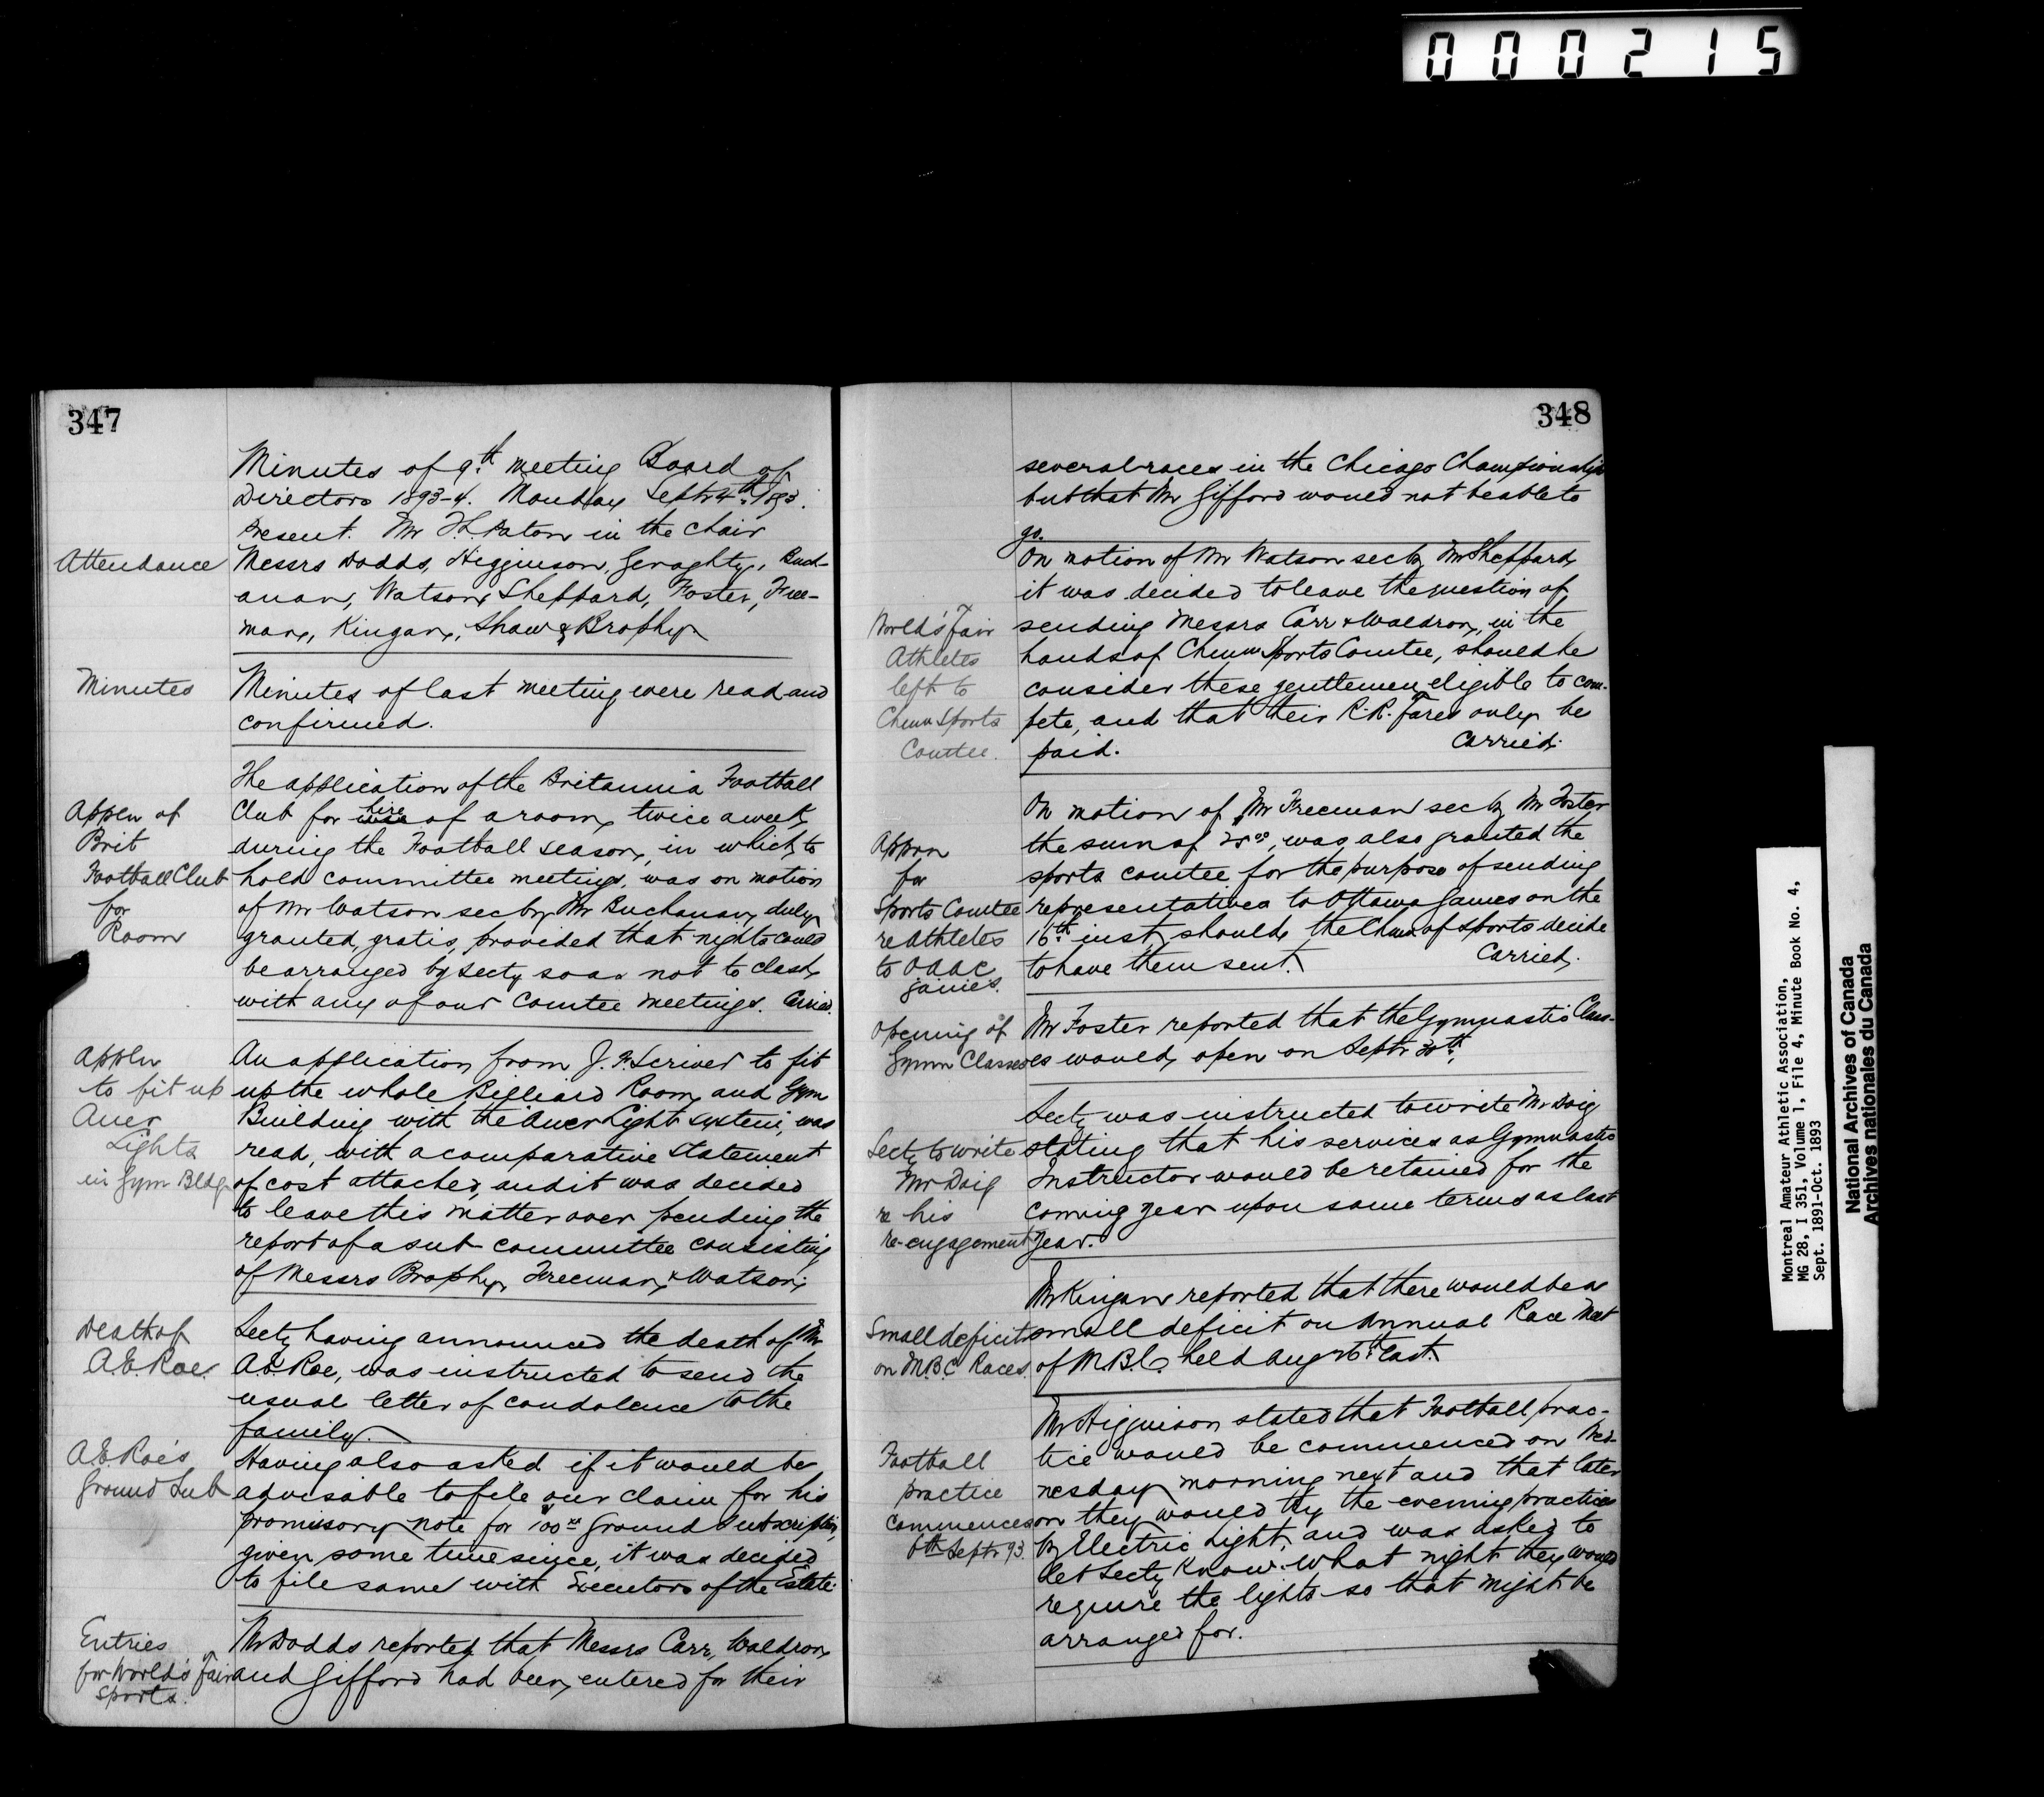 000215
347
Minutes of 9th meeting Board of
Directors 1893-4. Monday Septr 4th 1893.
Present. Mr T.L. Paton in the chair
Attendance
Messrs Dodds, Higginson, Geraghty, Buch-
anan, Watson, Sheppard, Foster, Free-
man, Kingan, Shaw & Brophy
Minutes
Minutes of last meeting were read and
confirmed.
Appln of
Brit
Football Club
for
Room
The application of the Britannia Football
Club for hire of a room, twice a week,
during the Football season, in which to
hold committee meetings, was on motion
of Mr Watson sec by Mr Buchanan, duly
granted, gratis, provided that nights could
be arranged by Secty so as not to clash
with any of our Comtee meetings. Carried.
Appln
to fit up
Auer
Lights
in Gym Bldg.
An application from J. F. Scriver to fit
up the whole Billiard Room, and Gym
Building with the Auer Light system, was
read, with a comparative statement
of cost attached, and it was decided
to leave this matter over pending the
report of a sub committee consisting
of Messrs Brophy, Freeman, & Watson.
Death of
A.E. Roe.
Secty having announced the death of Mr
A.E. Roe, was instructed to send the
usual letter of condolence to the
family.
A.E. Roe's
Ground Sub
Having also asked if it would be
advisable to file our claim for his
promissory note for $100 xx Ground Subscription,
given some time since, it was decided
to file same with Executors of the Estate.
Entries
for World's Fair
Sports.
Mr Dodds reported that Messrs Carr, Waldron,
and Gifford had been, entered for their
348
several races in the Chicago Championships
but that Mr Gifford would not be able to
go.
World's Fair
Athletes
left to
Chmn Sports
Comtee.
On motion of Mr Watson sec by Mr Sheppard,
it was decided to leave the question of
sending Messrs Carr & Waldron, in the
hands of Chmn Sports Comtee, should he
consider these gentlemen eligible to com-
pete, and that their R.R. Fares only be
paid. Carried.
Apprn
for
Sports Comtee
re Athletes
to OAAC
games.
On motion of Mr Freeman sec by Mr Foster
the sum of $25 00, was also granted the
sports comtee for the purpose of sending
representatives to Ottawa Games on the
16th inst, should the Chmn of Sports decide
to have them sent. Carried.
Opening of
Gymn Classes
Mr Foster reported that the Gymnastic Class-
es would, open on Septr 30th.
Secty to write
Mr Doig
re his
re-engagement
Secty was instructed to write Mr Doig
stating that his services as Gymnastic
Instructor would be retained for the
coming year upon same terms as last
year.
Small deficit
on M.B.C Races.
Mr Kingan reported that there would be a
small deficit on Annual Race Meet
of M.B.C. held Aug 26th last.
Football
practice
commences
6th Septr 93.
Mr Higginson stated that Football prac-
tice would be commenced on Wed-
nesday morning next and that later
on they would try the evening practices
by Electric Light, and was asked to
let Secty know what night they would
require the lights so that might be
arranged for.
Montreal Amateur Athletic Association,
MG 28, I 351, Volume 1, File 4, Minute Book No. 4,
Sept. 1891-Oct. 1893
National Archives of Canada
Archives nationales du Canada